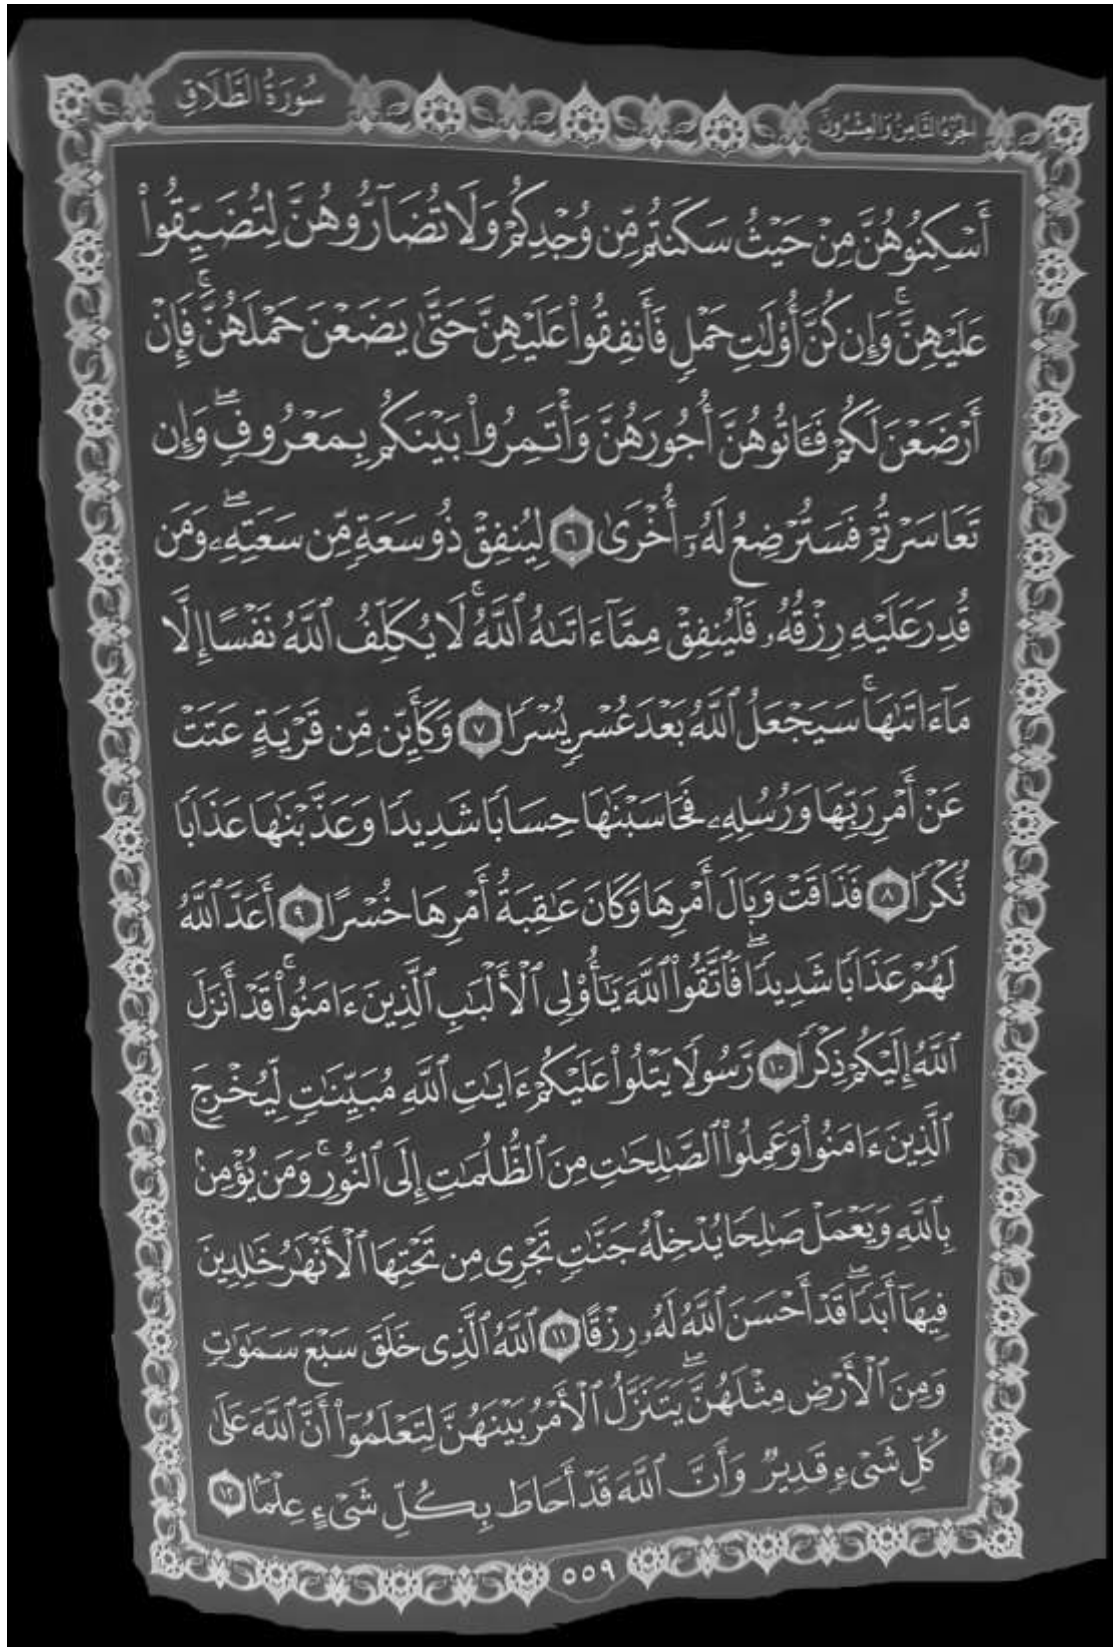 الجزء الثامن والعشرون
سُورَةُ الطَّلَاقِ
أَسْكِنُوهُنَّ مِنْ حَيْثُ سَكَنتُم مِّن وُجْدِكُمْ وَلَا تُضَآرُّوهُنَّ لِتُضَيِّقُوا۟
عَلَيْهِنَّ ۚ وَإِن كُنَّ أُو۟لَـٰتِ حَمْلٍ فَأَنفِقُوا۟ عَلَيْهِنَّ حَتَّىٰ يَضَعْنَ حَمْلَهُنَّ ۚ فَإِنْ
أَرْضَعْنَ لَكُمْ فَـَٔاتُوهُنَّ أُجُورَهُنَّ وَأْتَمِرُوا۟ بَيْنَكُم بِمَعْرُوفٍ ۖ وَإِن
تَعَاسَرْتُمْ فَسَتُرْضِعُ لَهُۥٓ أُخْرَىٰ ٦ لِيُنفِقْ ذُو سَعَةٍ مِّن سَعَتِهِۦ ۖ وَمَن
قُدِرَ عَلَيْهِ رِزْقُهُۥ فَلْيُنفِقْ مِمَّآ ءَاتَىٰهُ ٱللَّهُ ۚ لَا يُكَلِّفُ ٱللَّهُ نَفْسًا إِلَّا
مَآ ءَاتَىٰهَا ۚ سَيَجْعَلُ ٱللَّهُ بَعْدَ عُسْرٍ يُسْرًا ٧ وَكَأَيِّن مِّن قَرْيَةٍ عَتَتْ
عَنْ أَمْرِ رَبِّهَا وَرُسُلِهِۦ فَحَاسَبْنَـٰهَا حِسَابًا شَدِيدًا وَعَذَّبْنَـٰهَا عَذَابًا
نُّكْرًا ٨ فَذَاقَتْ وَبَالَ أَمْرِهَا وَكَانَ عَـٰقِبَةُ أَمْرِهَا خُسْرًا ٩ أَعَدَّ ٱللَّهُ
لَهُمْ عَذَابًا شَدِيدًا ۖ فَٱتَّقُوا۟ ٱللَّهَ يَـٰٓأُو۟لِى ٱلْأَلْبَـٰبِ ٱلَّذِينَ ءَامَنُوا۟ ۚ قَدْ أَنزَلَ
ٱللَّهُ إِلَيْكُمْ ذِكْرًا ١٠ رَّسُولًا يَتْلُوا۟ عَلَيْكُمْ ءَايَـٰتِ ٱللَّهِ مُبَيِّنَـٰتٍ لِّيُخْرِجَ
ٱلَّذِينَ ءَامَنُوا۟ وَعَمِلُوا۟ ٱلصَّـٰلِحَـٰتِ مِنَ ٱلظُّلُمَـٰتِ إِلَى ٱلنُّورِ ۚ وَمَن يُؤْمِنۢ
بِٱللَّهِ وَيَعْمَلْ صَـٰلِحًا يُدْخِلْهُ جَنَّـٰتٍ تَجْرِى مِن تَحْتِهَا ٱلْأَنْهَـٰرُ خَـٰلِدِينَ
فِيهَآ أَبَدًا ۖ قَدْ أَحْسَنَ ٱللَّهُ لَهُۥ رِزْقًا ١١ ٱللَّهُ ٱلَّذِى خَلَقَ سَبْعَ سَمَـٰوَٰتٍ
وَمِنَ ٱلْأَرْضِ مِثْلَهُنَّ ۖ يَتَنَزَّلُ ٱلْأَمْرُ بَيْنَهُنَّ لِتَعْلَمُوٓا۟ أَنَّ ٱللَّهَ عَلَىٰ
كُلِّ شَىْءٍ قَدِيرٌ وَأَنَّ ٱللَّهَ قَدْ أَحَاطَ بِكُلِّ شَىْءٍ عِلْمًۢا ١٢
٥٥٩